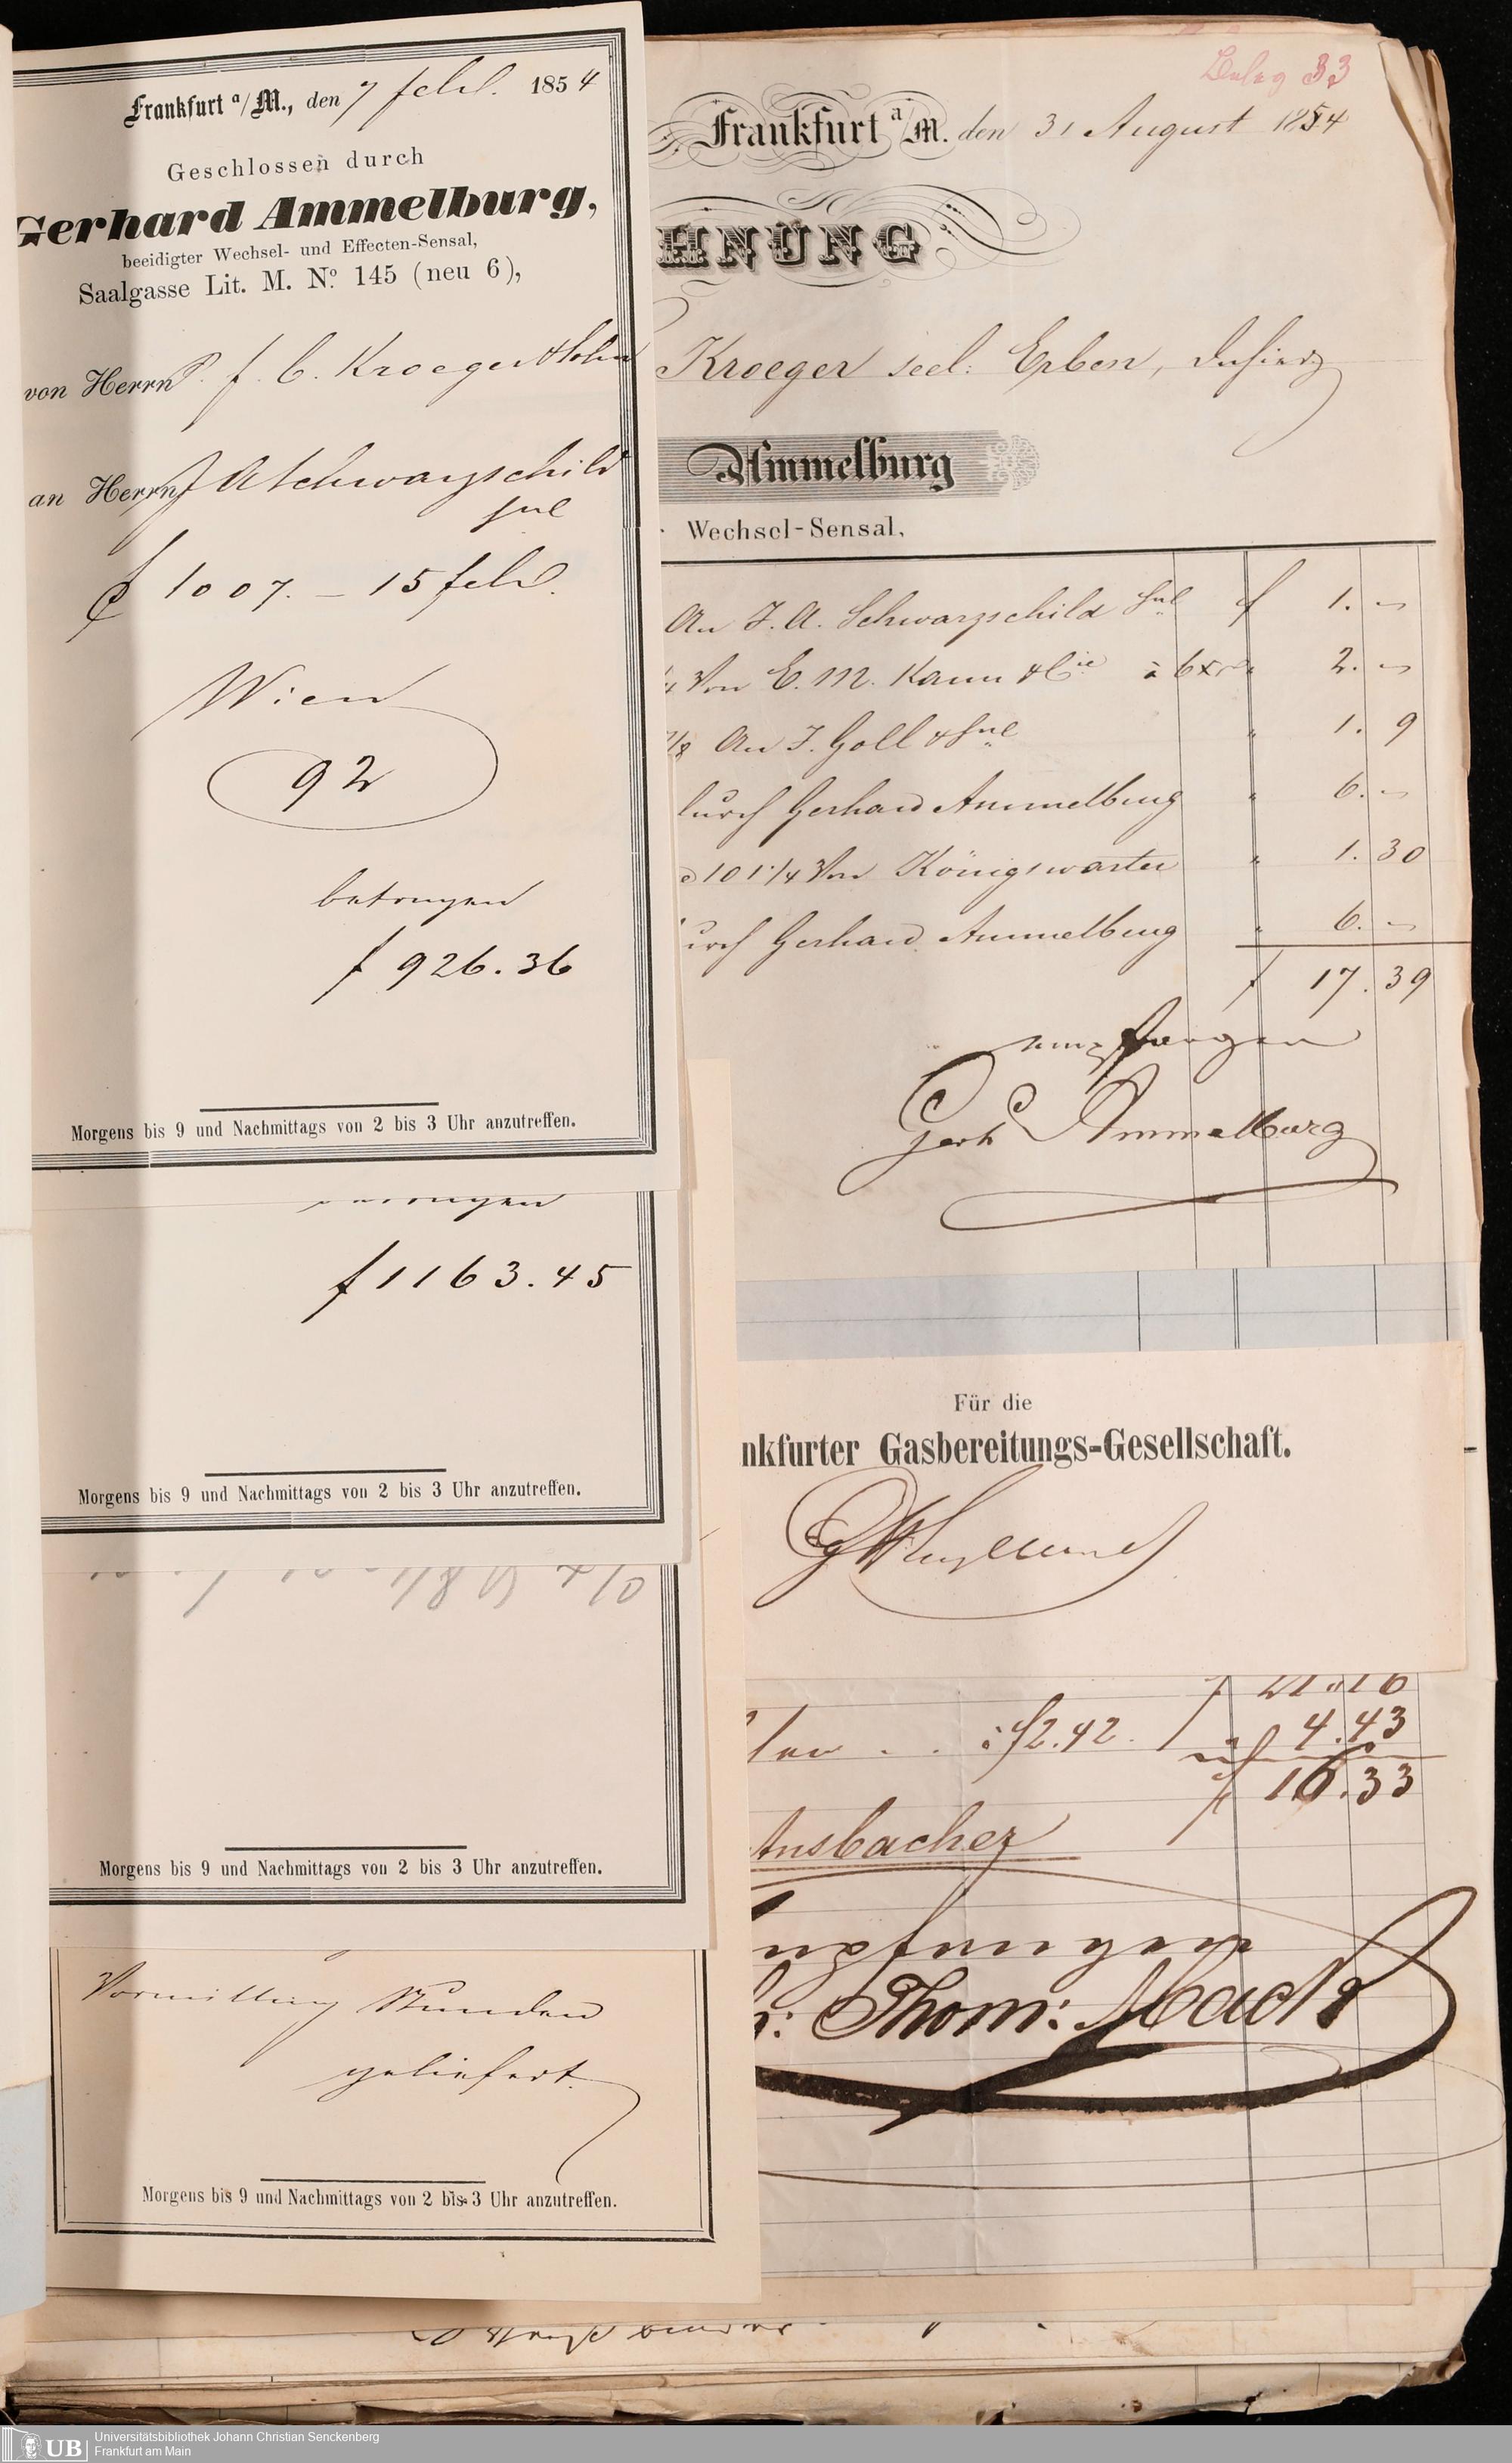 Frankfurt a/M., den 7 febr. 1854
Geschlossen durch
Gerhard Ammelburg,
beeidigter Wechsel- und Effecten-Sensal,
Saalgasse Lit. M. No. 145 (neu 6),
von Herrn P. f. C. Kroeger & Sohn
an Herrn J A Schwarzschild
Sne
f 1007. — 15 febr.
Wien
92
betragen
f 926.36
Morgens bis 9 und Nachmittags von 2 bis 3 Uhr anzutreffen.
f 1163.45
Morgens bis 9 und Nachmittags von 2 bis 3 Uhr anzutreffen.
Morgens bis 9 und Nachmittags von 2 bis 3 Uhr anzutreffen.
Vormittag Stunden
geliefert.
Morgens bis 9 und Nachmittags von 2 bis 3 Uhr anzutreffen.
Beleg 33
Frankfurt a/M. den 31 August 1854
HNUNG
Kroeger seel: Erben,
Ammelburg
Wechsel-Sensal,
An J. A. Schwarzschild Sne f 1. —
Von E. M. Kann & Cie à 6xr " 2. —
An J. Goll & Sne " 1. 9
durch Gerhard Ammelburg " 6. —
101 1/4 Von Königswarter " 1. 30
urch Gerhard Ammelburg " 6. —
f 17. 39
empfangen
Gerh Ammelburg
Für die
nkfurter Gasbereitungs-Gesellschaft.
f 21.16
à f2.42. " 4.43
f 16.33
Ansbacher
empfangen
Thom: Mack
UB
Universitätsbibliothek Johann Christian Senckenberg
Frankfurt am Main